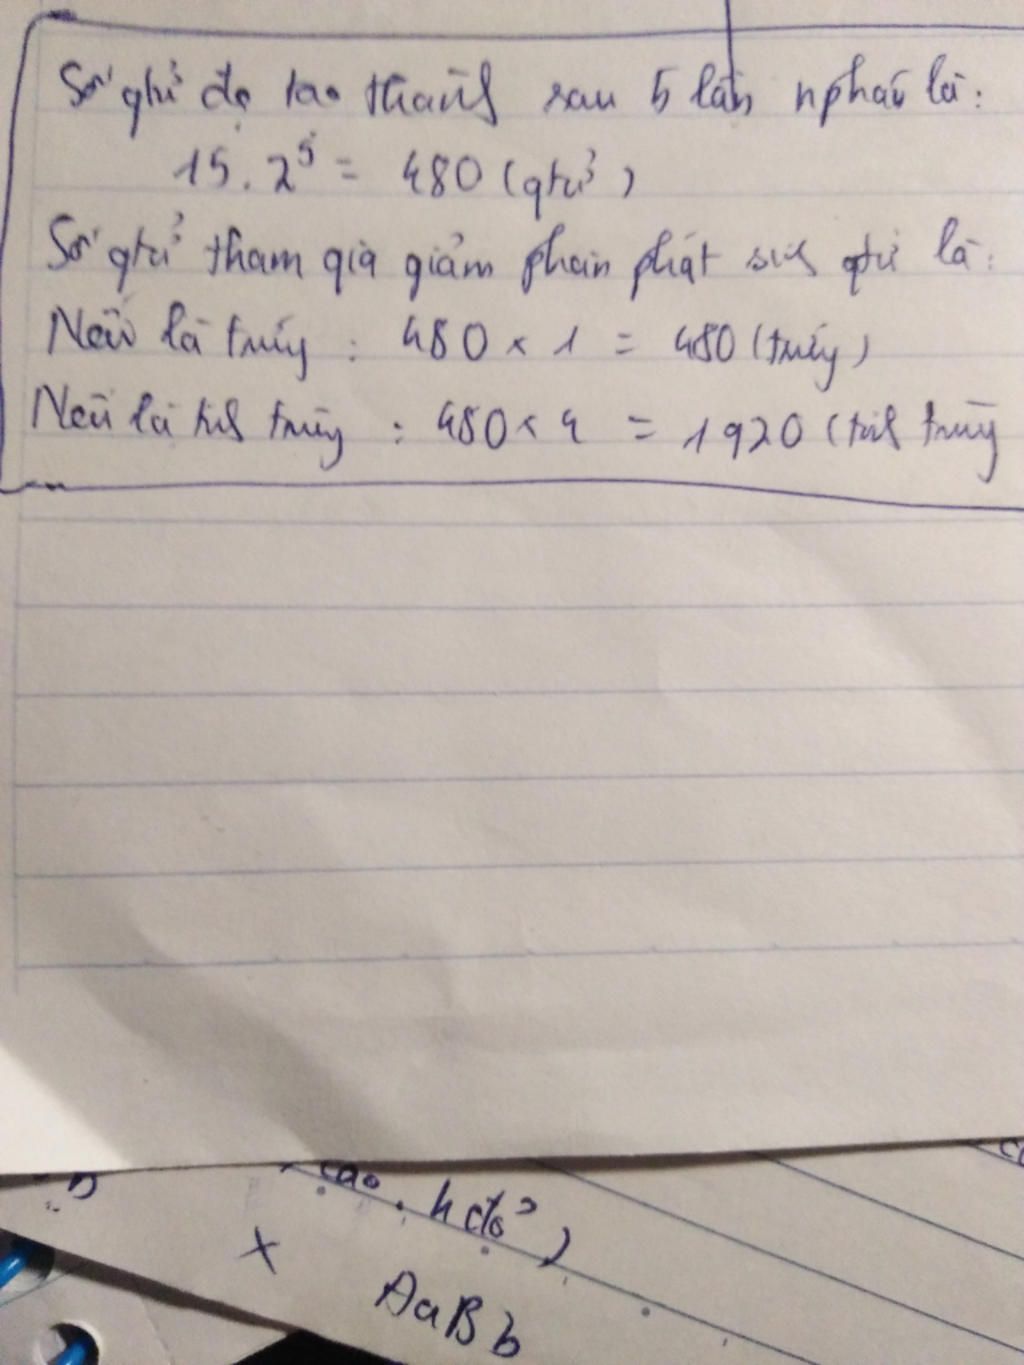 Số gtử đc tạo thành sau 5 lần nphân là:
15. 2⁵ = 480 (gtử)
Số gtử tham gia giảm phân phát sinh gtử là:
Nếu là trứng : 480 × 1 = 480 (trứng)
Nếu là tinh trùng : 480 × 4 = 1920 (tinh trùng
cao . h đỏ )
×
AaBb